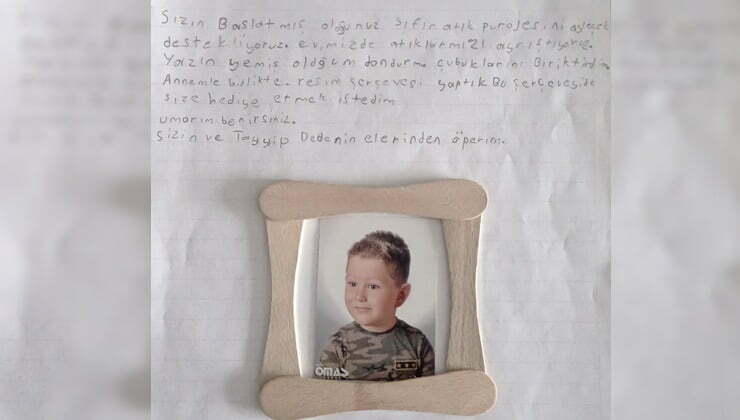 Sizin Başlatmış olduğunuz sıfır atık purojesini ailecek
destekliyoruz. evimizde atıklarımızı ayrıştıyoruz.
Yazın yemiş olduğum dondurma çubuklarını Biriktirdim
Annemle birlikte resim çerçevesi yaptık Bu çerçeveyide
size hediye etmek istedim
umarım benirsiniz.
Sizin ve Tayyip Dedenin elerinden öperim.
OMAS